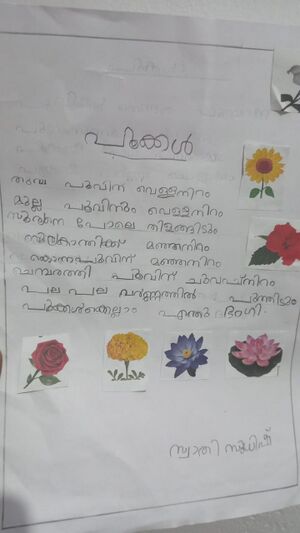 പൂക്കൾ
തുമ്പ പൂവിന് വെള്ളനിറം
മുല്ല പൂവിനും വെള്ളനിറം
സൂര്യനെ പോലെ തിളങ്ങിടും
സൂര്യകാന്തിക്ക് മഞ്ഞനിറം
കൊന്നപൂവിന് മഞ്ഞനിറം
ചെമ്പരത്തി പൂവിന് ചുവപ്പ്നിറം
പല പല വർണ്ണത്തിൽ പൂത്തിടും
പൂക്കൾക്കെല്ലാം എന്തു ഭംഗി
സ്വാതി സുധിഷ്